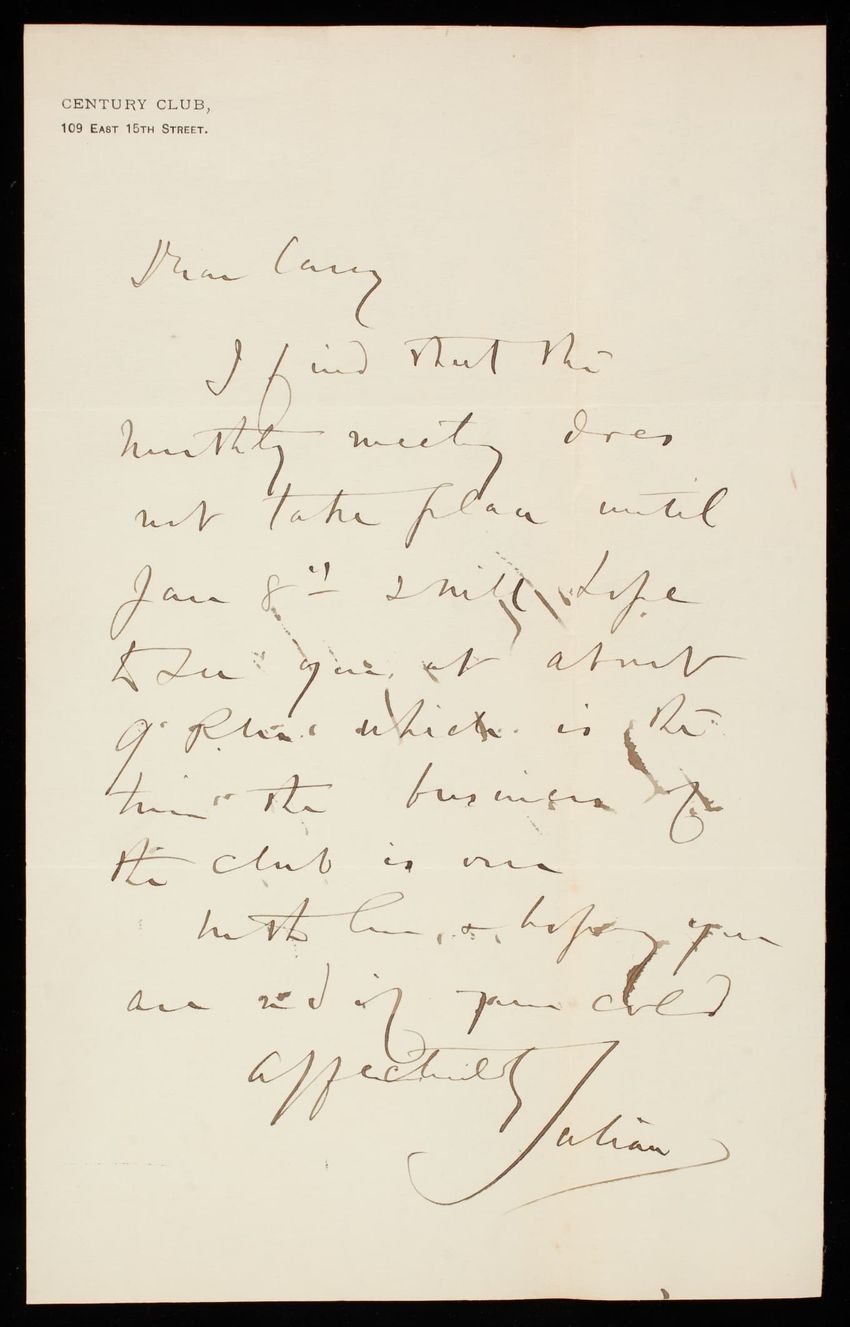 CENTURY CLUB,
109 EAST 15TH STREET.
Dear Casey
I find that the
monthly meeting does
not take place until
Jan 8th I will hope
to see you at about
9 P.M. which is the
time the business of
the club is over
With love, & hoping you
are rid of your cold
affectionately
Julian